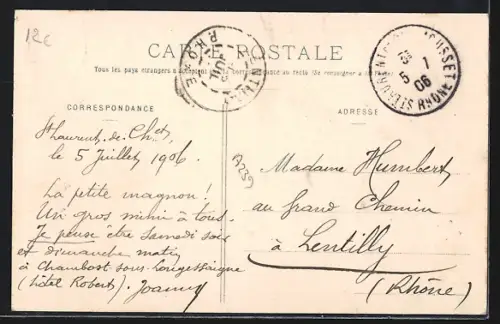 12€
CARTE POSTALE
Tous les pays étrangers n'acceptent pas la correspondance au recto (Se renseigner à la Poste)
CORRESPONDANCE
ADRESSE
LENTILLY
RHONE
JUIL
5 1
06
RHONE
A239
St Laurent-de-Cht,
le 5 Juillet 1906.
La petite magnon!
Un gros mimi à tous.
Je pense être samedi soir
et dimanche matin
à Chambost sous Longessaigne
(hôtel Robert). Joanny
Madame Humbert,
au Grand Chemin
à Lentilly
(Rhône)